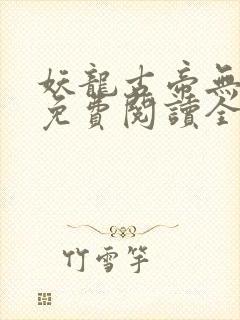 妖龍古帝無
免費閱讀全
竹雪竽